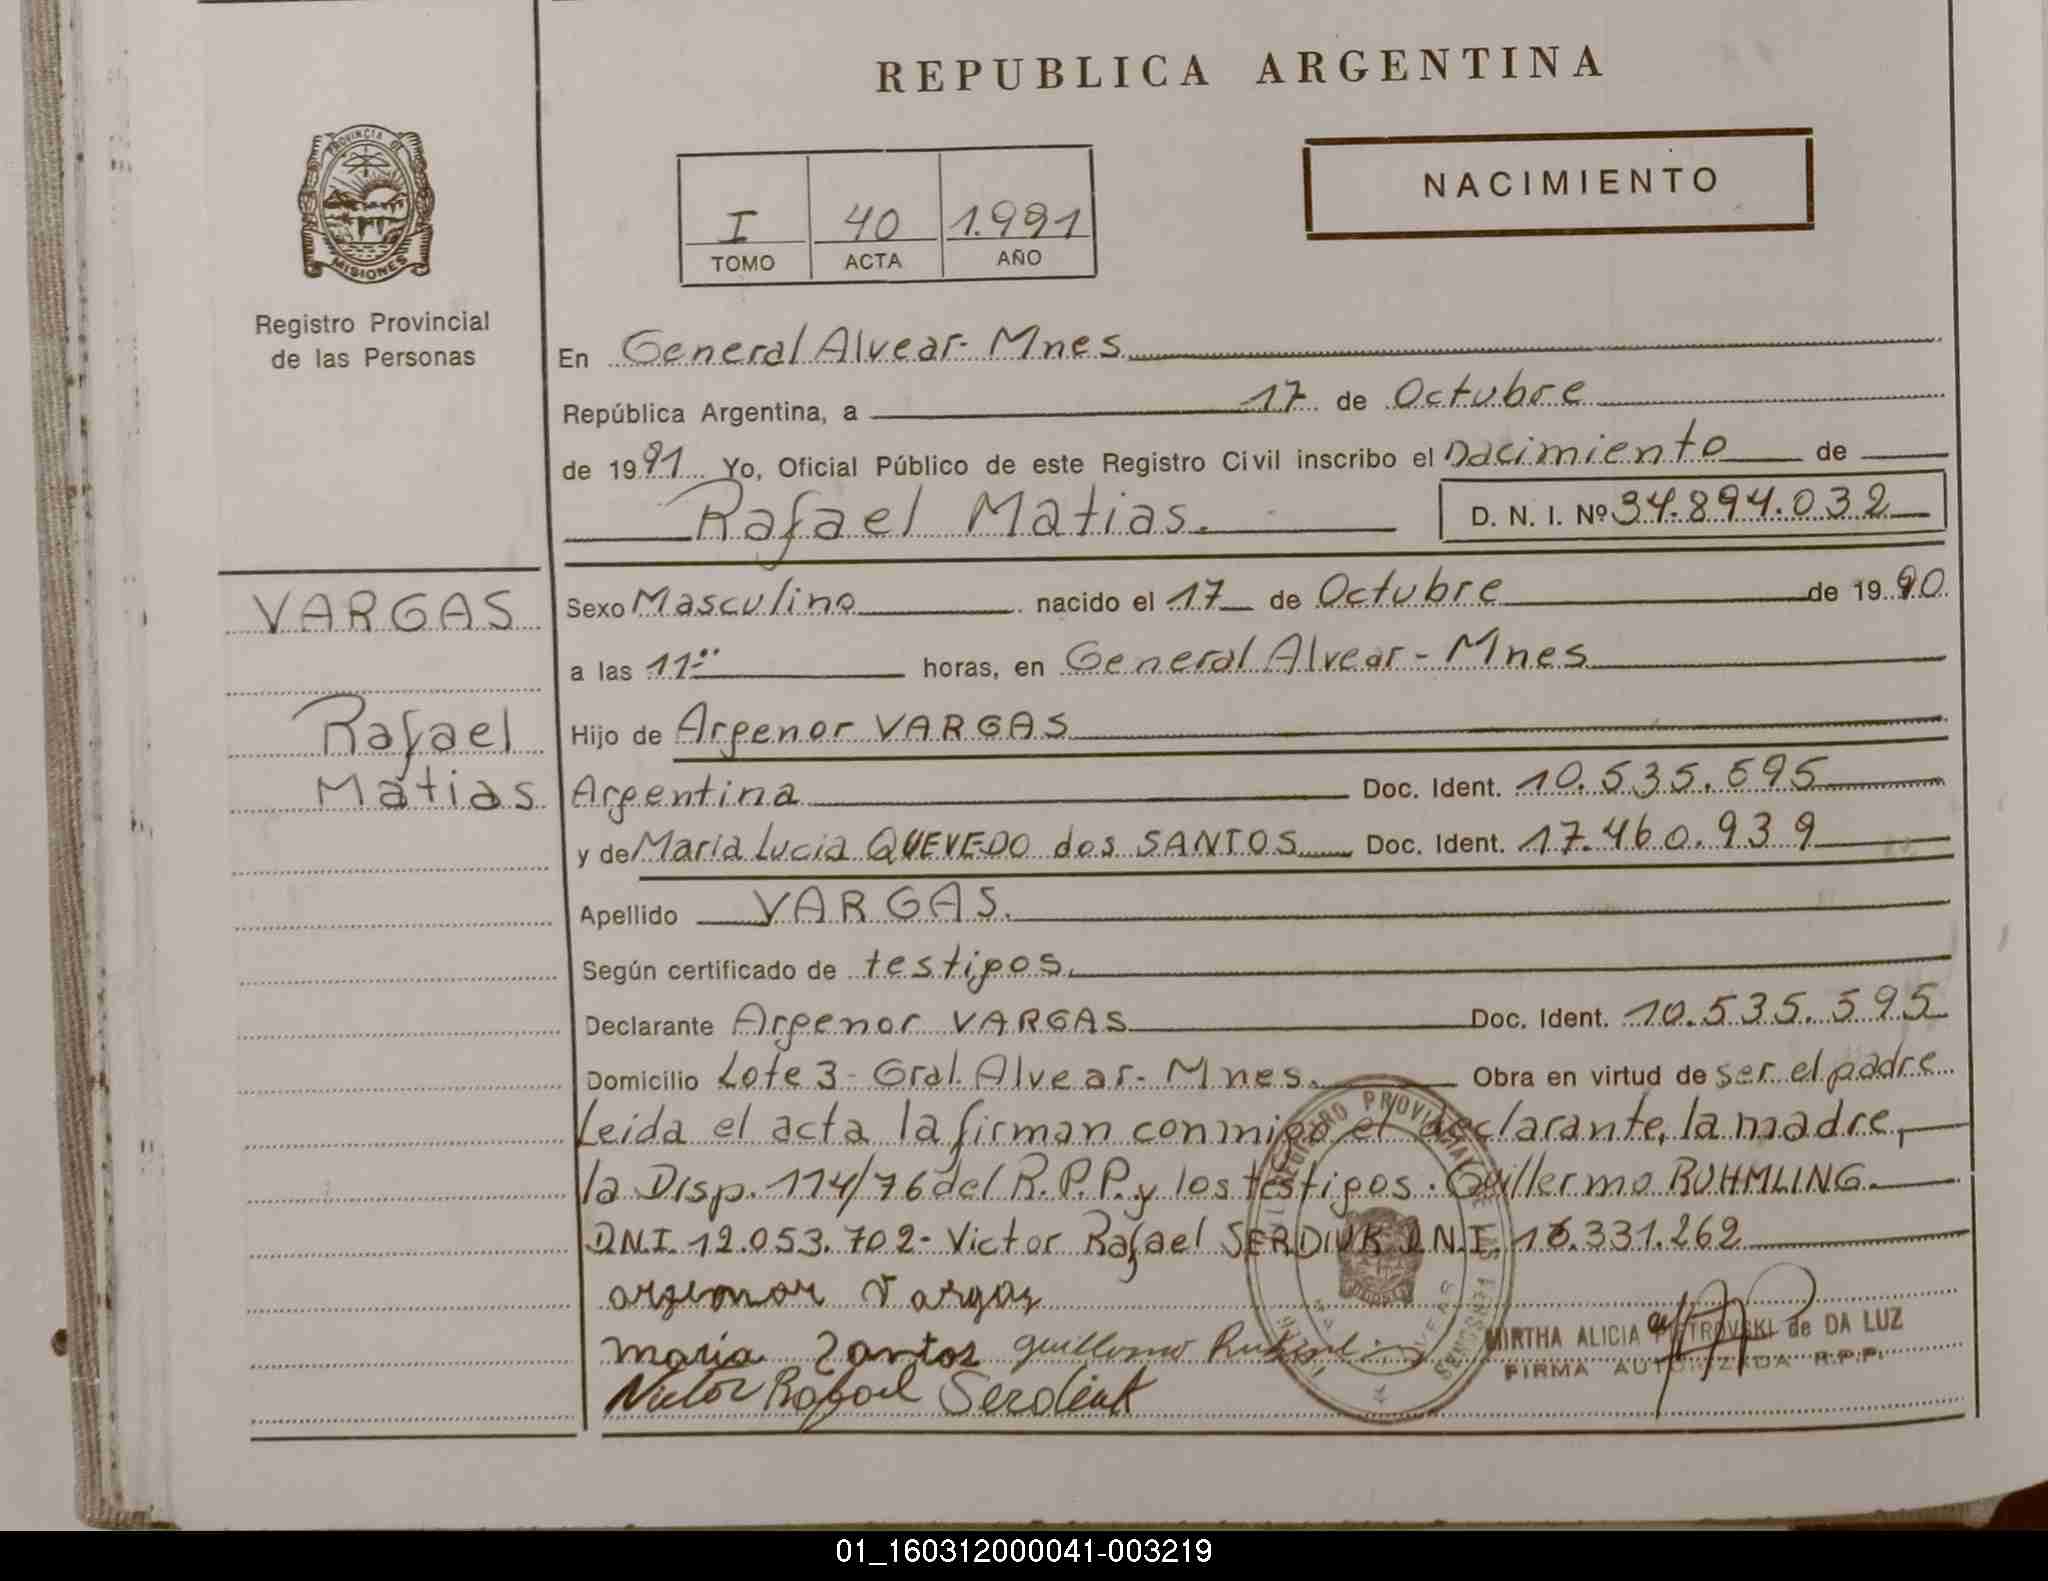 REPUBLICA ARGENTINA
NACIMIENTO
I 40 1.991
TOMO ACTA AÑO
PROVINCIA DE
MISIONES
Registro Provincial
de las Personas
En General Alvear - Mnes
República Argentina, a 17 de Octubre
de 1991 Yo, Oficial Público de este Registro Civil inscribo el nacimiento de
Rafael Matias. D. N. I. Nº 34.894.032
VARGAS
Rafael
Matias
Sexo Masculino nacido el 17 de Octubre de 1990
a las 11 horas, en General Alvear - Mnes
Hijo de Argenor VARGAS
Argentina Doc. Ident. 10.535.595
y de Maria Lucia QUEVEDO dos SANTOS Doc. Ident. 17.460.939
Apellido VARGAS.
Según certificado de testigos.
Declarante Argenor VARGAS Doc. Ident. 10.535.595
Domicilio Lote 3 - Gral. Alvear - Mnes. Obra en virtud de ser el padre
Leida el acta la firman conmigo el declarante, la madre,
la Disp. 114/76 del R.P.P. y los testigos. Guillermo RUHMLING.
DN.I. 12.053.702 - Victor Rafael SERDIUK D.N.I. 16.331.262
argenor Vargas
maria Santos guillermo
Victor Rafael Serdiuk
MIRTHA ALICIA PETROVSKI de DA LUZ
FIRMA AUTORIZADA R.P.P.
REGISTRO PROVINCIAL DE LAS PERSONAS
01_160312000041-003219